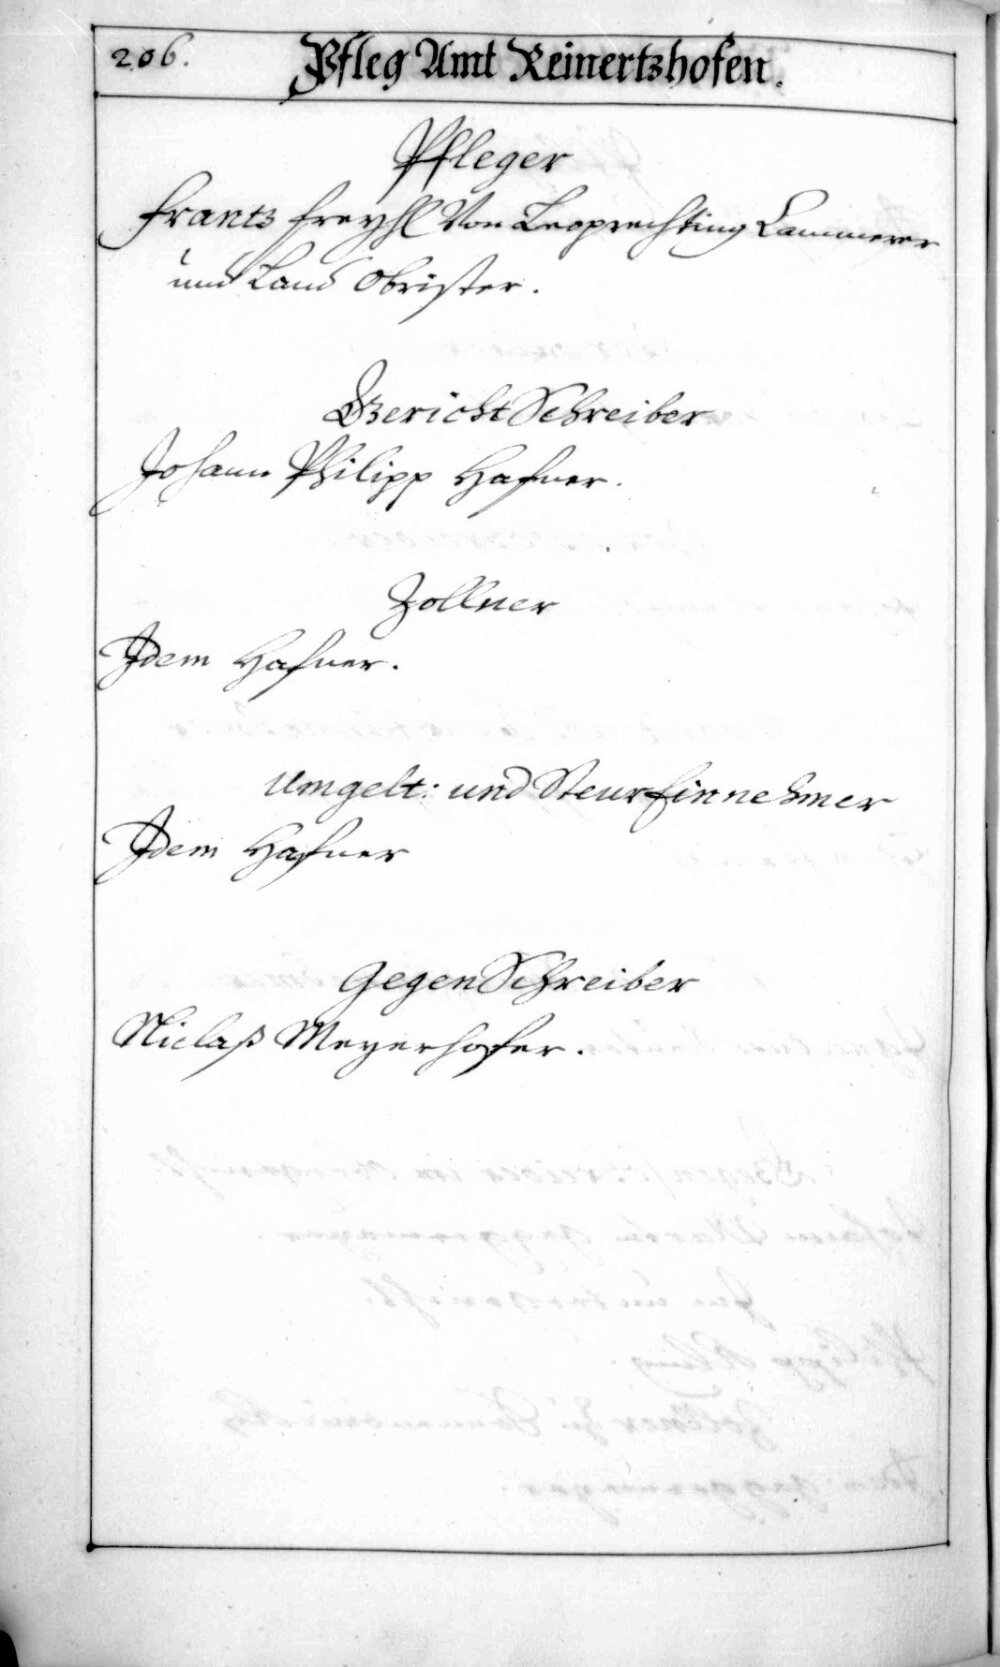 206.
Pfleg Amt Reinertshofen.
Pfleger
Frantz Freyhl Von Leoprechting Cammerer
und Land Obrister.
Gericht Schreiber
Johann Philipp Hafner.
Zollner
Idem Hafner.
Umgelt: und Steur Einnehmer
Idem Hafner
Gegen Schreiber
Niclaß Meyerhofer.